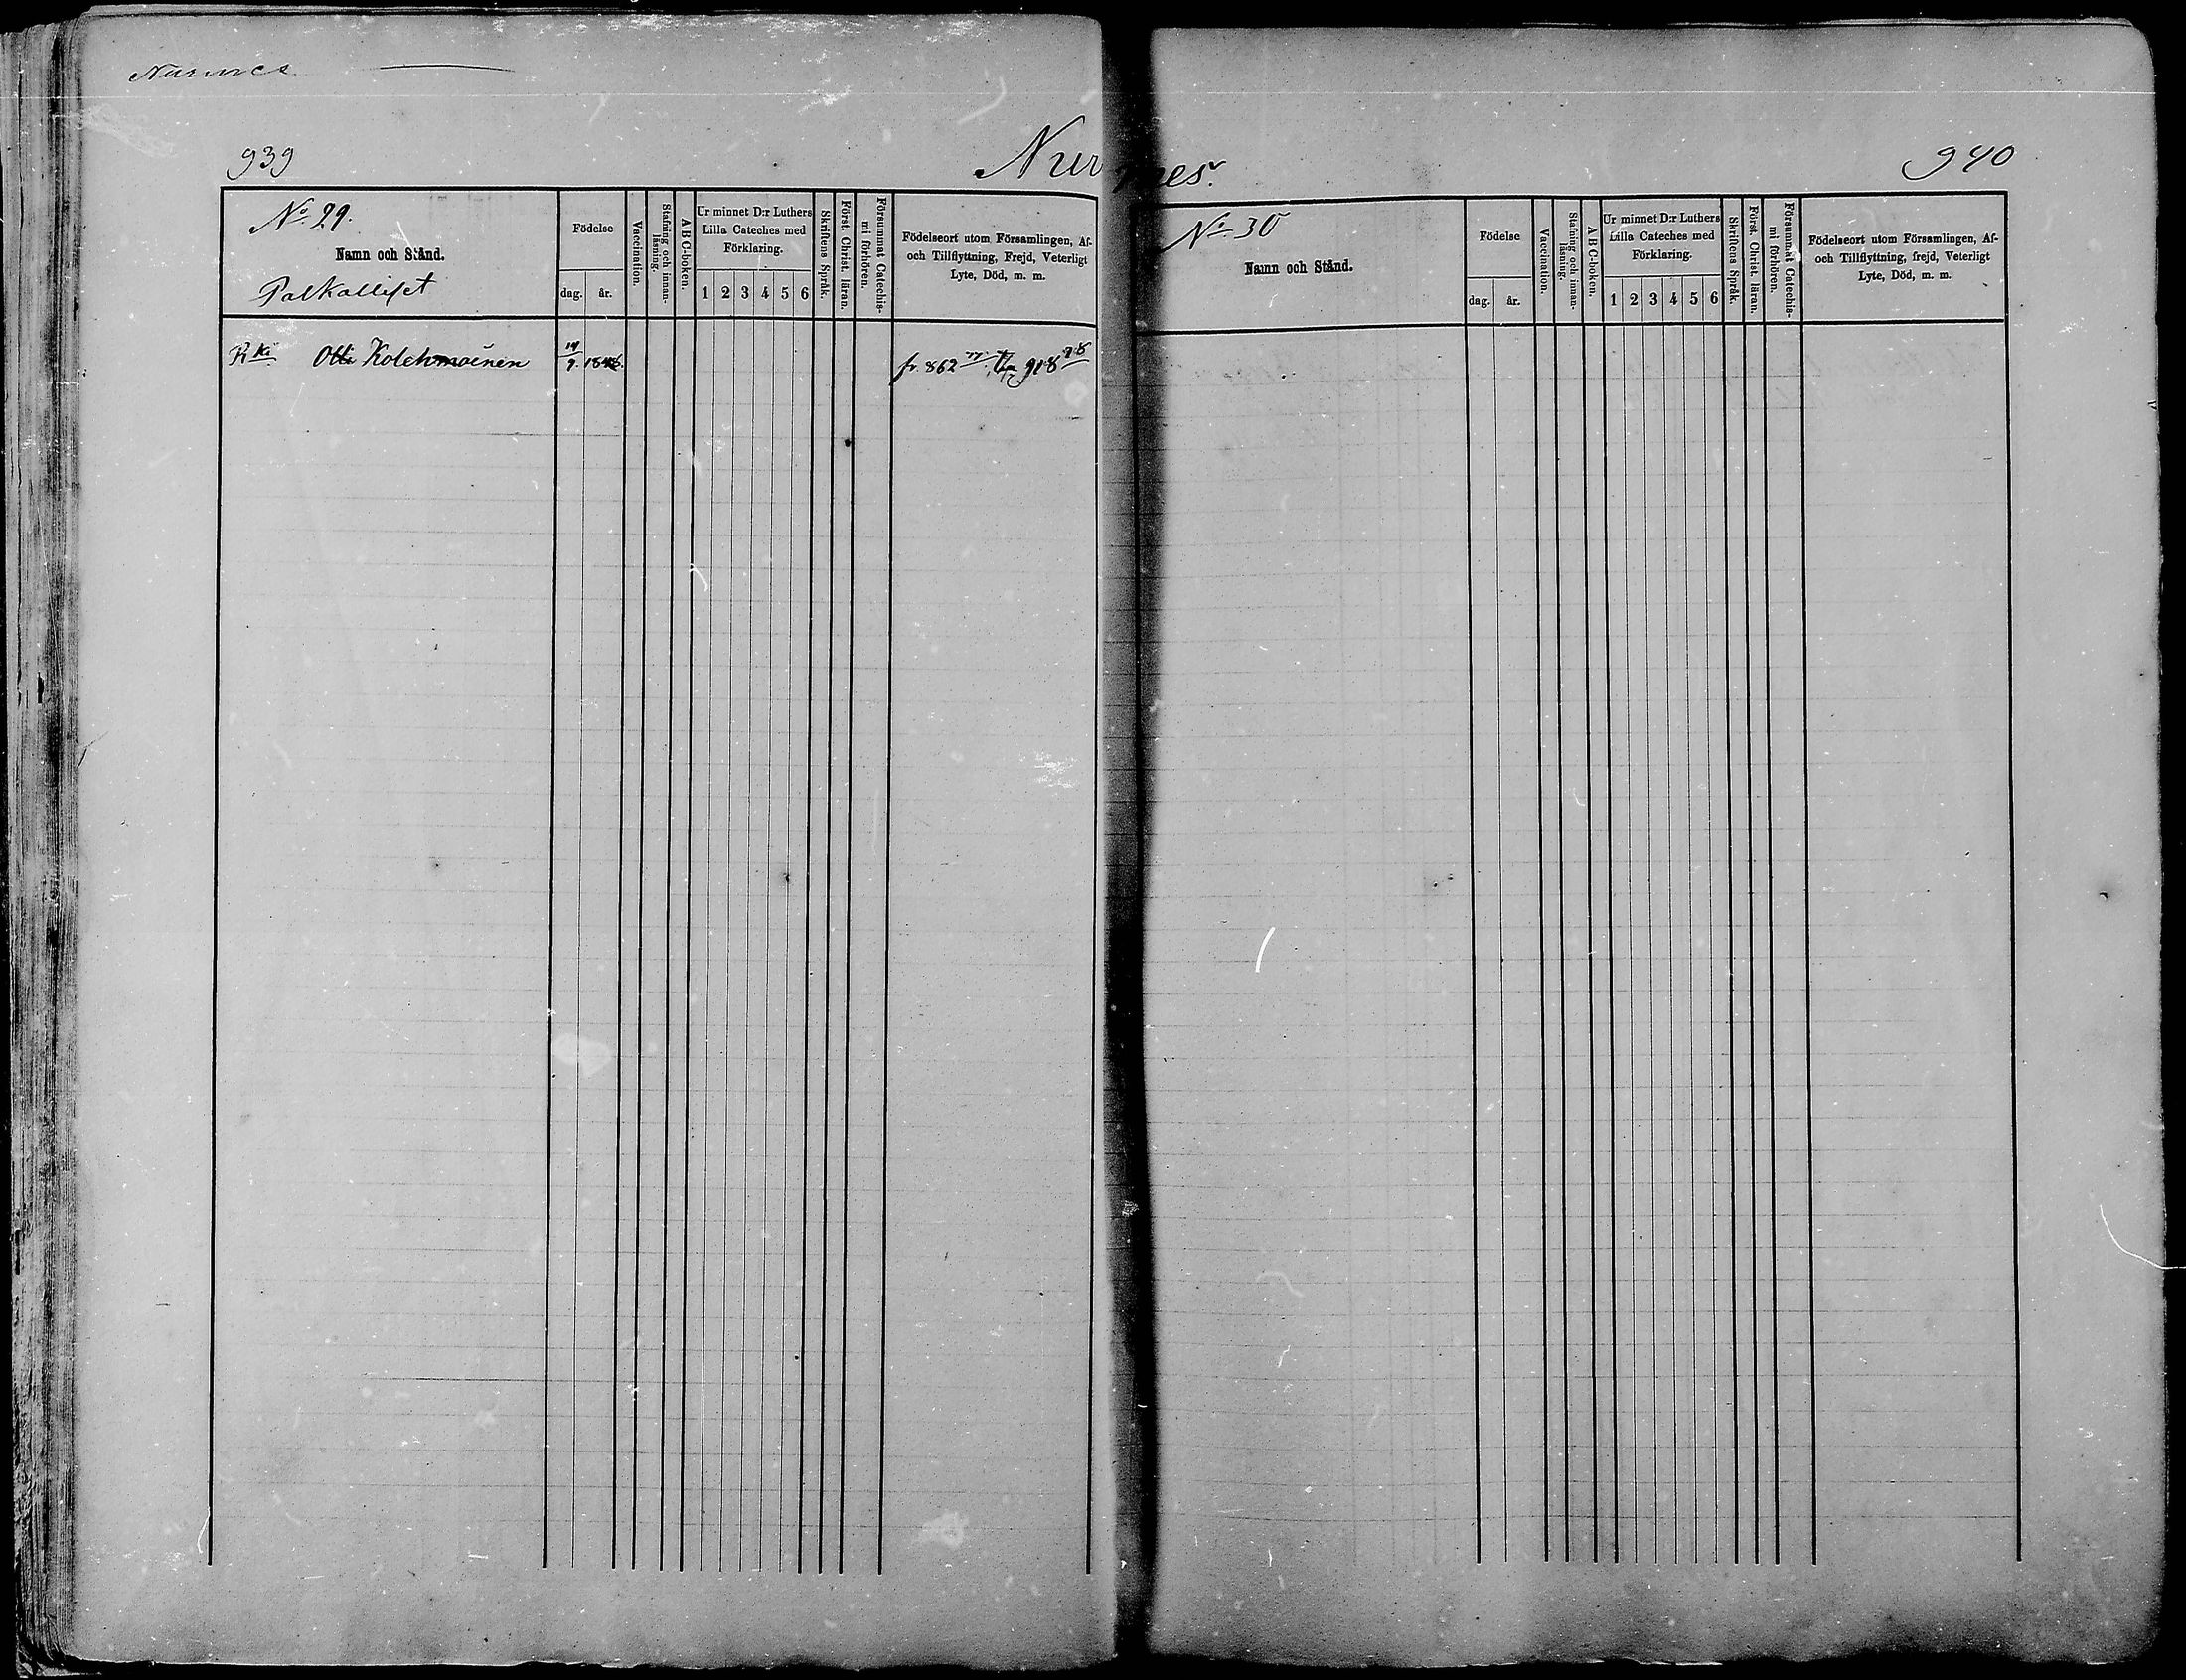 Nurmes
939
Nurmes.
940
No 29.
Namn och Stånd.
Palkalliset
Födelse
dag. år.
Vaccination.
Stafning och innanläsning.
A B C-boken.
Ur minnet D:r Luthers
Lilla Cateches med
Förklaring.
1 2 3 4 5 6
Skriftens Språk.
Först. Christ. läran.
Försummat Catechismi förhören.
Födelseort utom Församlingen, Af-
och Tillflyttning, Frejd, Veterligt
Lyte, Död, m. m.
Rki Otti Kolehmainen 14/9. fr. 862 77. 918 78
No 30
Namn och Stånd.
Födelse
dag. år.
Vaccination.
Stafning och innanläsning.
A B C-boken.
Ur minnet D:r Luthers
Lilla Cateches med
Förklaring.
1 2 3 4 5 6
Skriftens Språk.
Först. Christ. läran.
Försummat Catechismi förhören.
Födelseort utom Församlingen, Af-
och Tillflyttning, frejd, Veterligt
Lyte, Död, m. m.